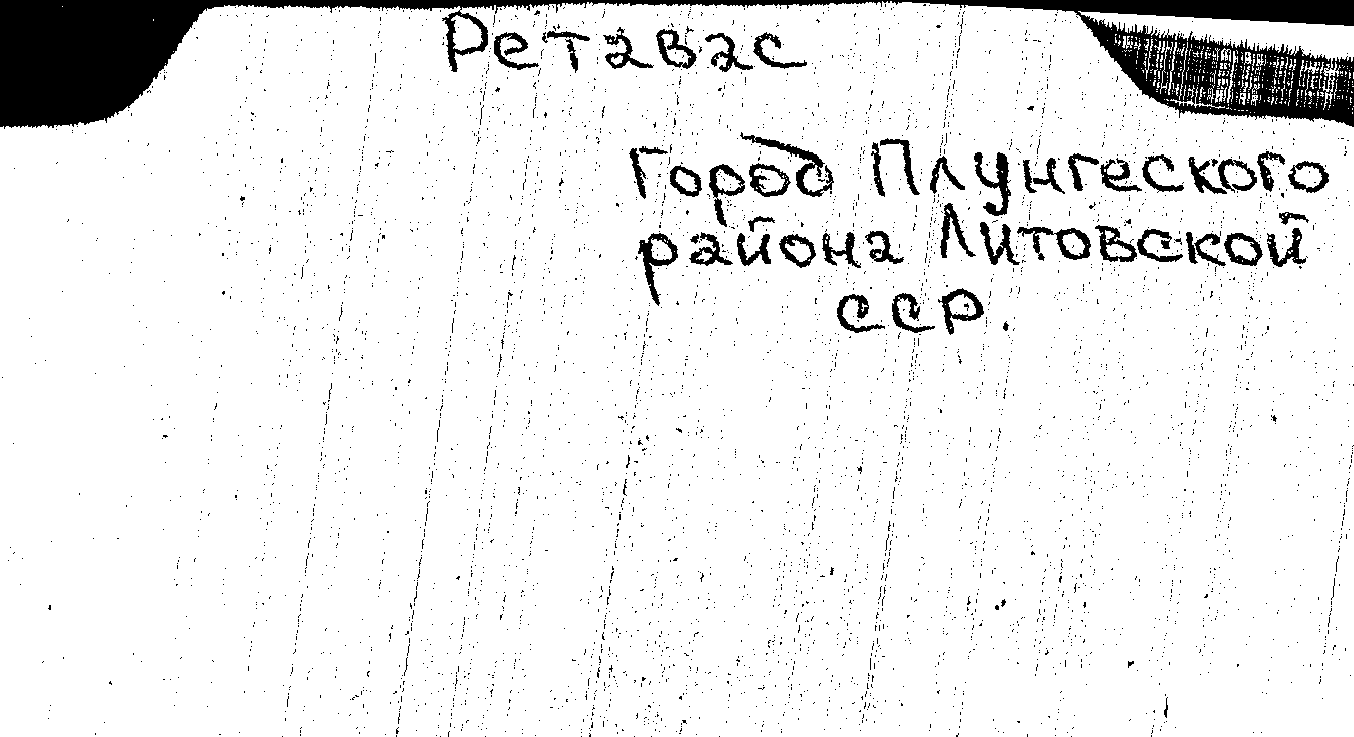 Ретавас
Город Плунгеского
района Литовской
ССР.